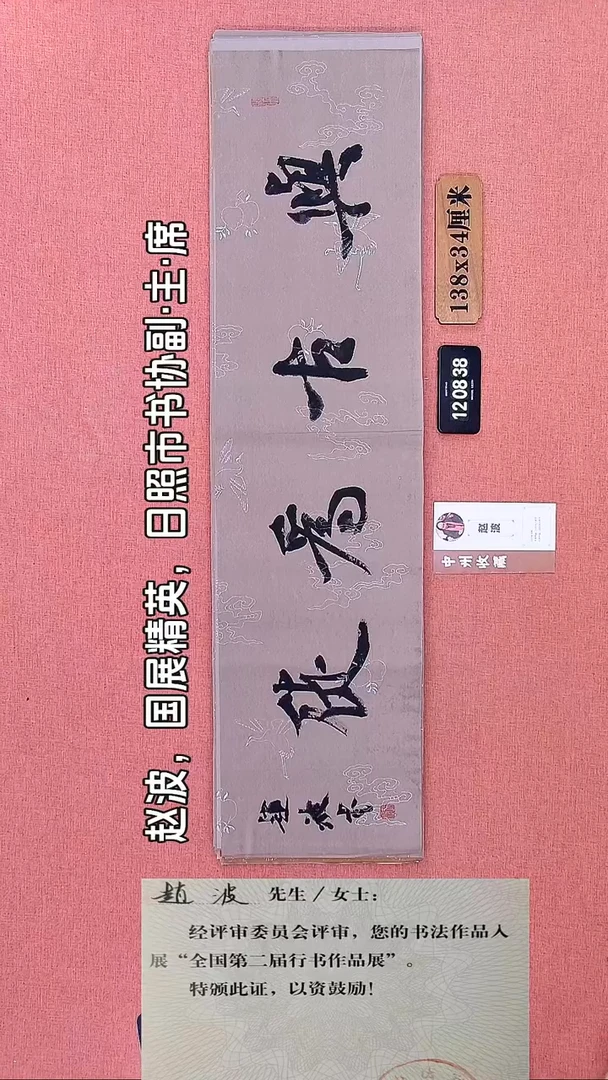 赵波，国展精英，日照市书协副·主·席
與古為徒
趙波书
138x34厘米
12 08 38
赵波
中州收藏
趙波 先生／女士：
经评审委员会评审，您的书法作品入
展“全国第二届行书作品展”。
特颁此证，以资鼓励！